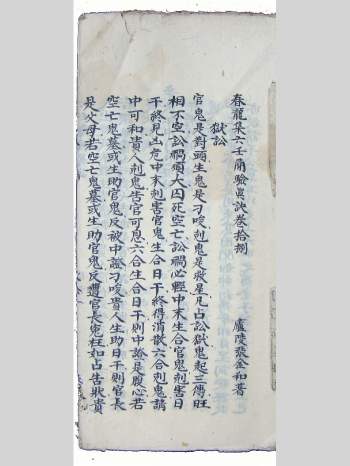 春龍集六壬開驗眞訣卷拾捌
廬陵張金和著
獄訟
官鬼是對頭生鬼是刁唆剋鬼是救星凡占訟獄鬼起三傳旺
相不空訟禍須大囚死空亡訟禍必輕中末生合官鬼剋害日
干終見凶危中末剋害官鬼生合日干終得消散六合剋鬼講
中可和貴人剋鬼告官可息六合生合日干則中證是腹心若
空亡鬼墓或生助官鬼反被中證刁唆貴人生助日干則官長
是父母若空亡鬼墓或生助官鬼反遭官長寃枉如占告狀貴